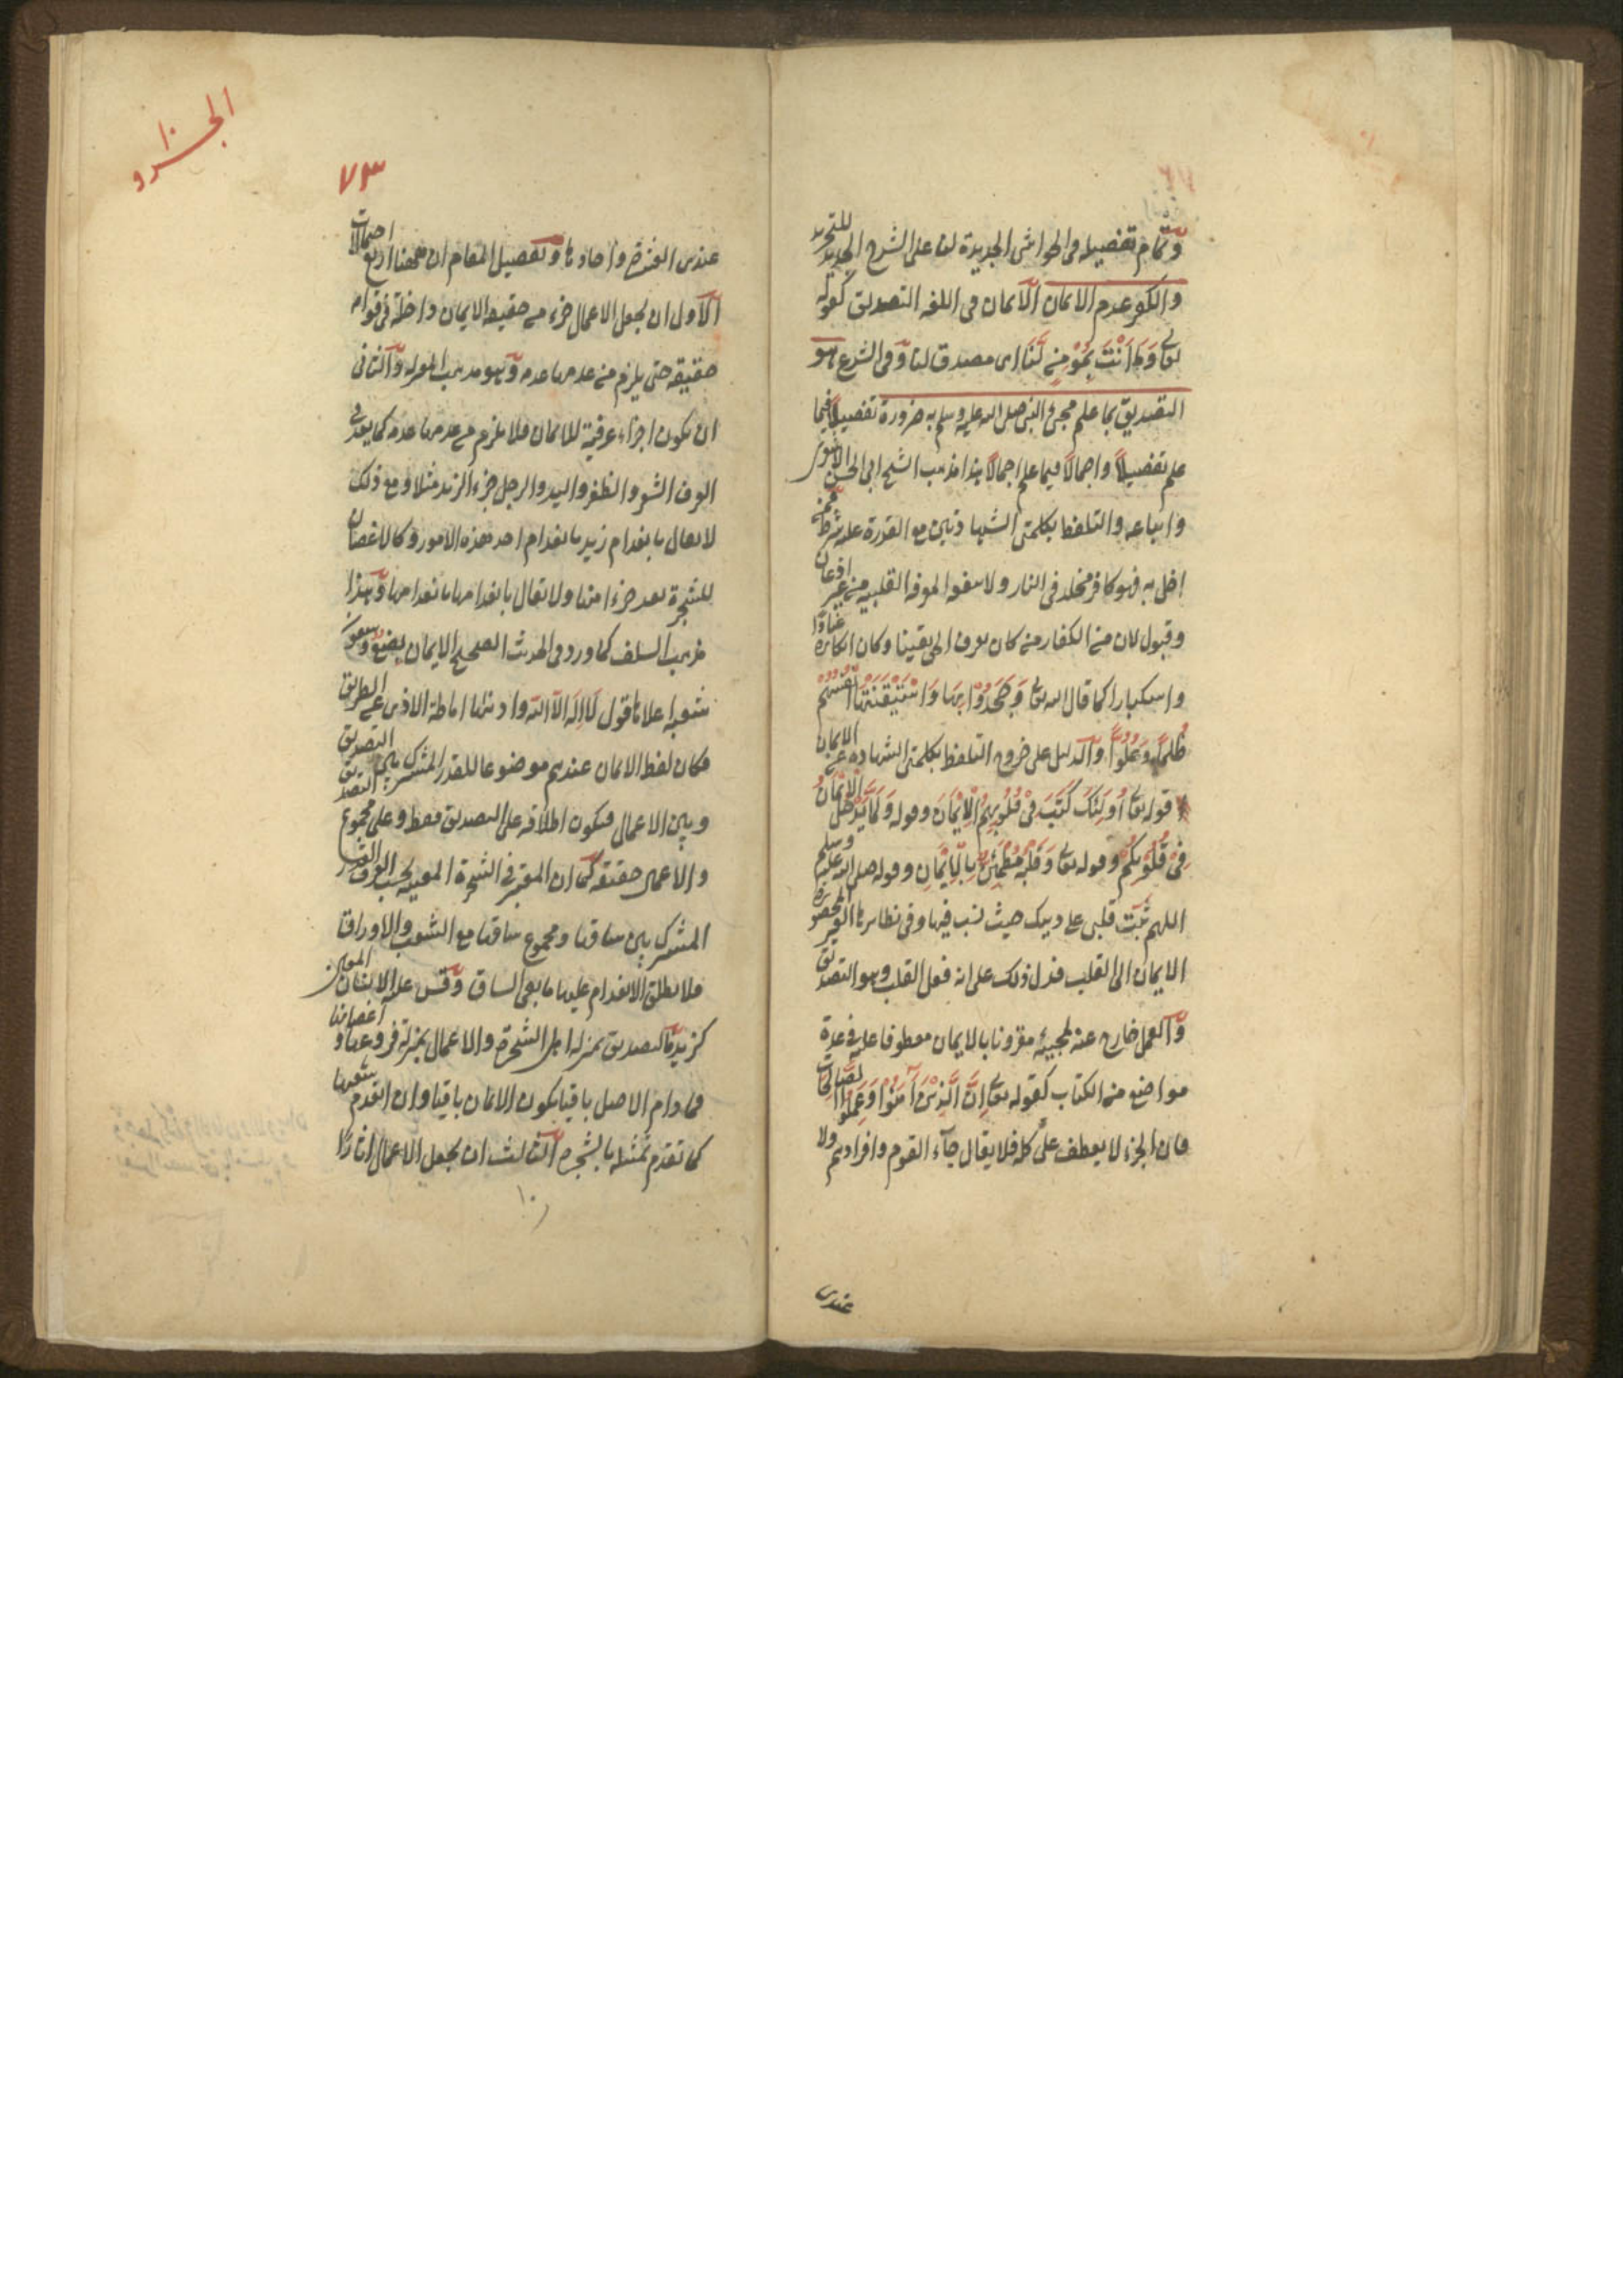 وتمام تفصيله فى الحواشى الجديدة لنا على الشرح الجديد للتجريد
والكفر عدم الايمان الايمان فى اللغه التصديق كقوله
تعالى وَمَا اَنْتَ بِمُؤْمِنٍ لَّنَا اى مصدق لنا وفى الشرع هو
التصديق بما علم مجئ النبى صلى الله عليه وسلم به ضرورة تفصيلاً فيما
علم تفصيلاً واجمالاً فيما علم اجمالاً هذا مذهب الشيخ ابى الحسن الاشعرى
واتباعه والتلفظ بكلمتى الشهادتين مع القدرة عليه شرط فمن
اخل به فهو كافر مخلد فى النار ولا ينفعه المعرفة القلبيه من غير اذعان
وقبول لان من الكفار من كان يعرف الحق يقينا وكان انكاره عنادًا
واستكبارا كما قال الله تعالى وَجَحَدُوْا بِهَا وَاسْتَيْقَنَتْهَا اَنْفُسُهُمْ
ظُلْمًا وَعُلُوًّا والدليل على خروج التلفظ بكلمتى الشهاده عن الايمان
قوله تعالى اُولٰئِكَ كَتَبَ فِىْ قُلُوْبِهِمُ الْاِيْمَانَ وقوله وَلَمَّا يَدْخُلِ الْاِيْمَانُ
فِىْ قُلُوْبِكُمْ وقوله تعالى وَقَلْبُهٗ مُطْمَئِنٌّ بِالْاِيْمَانِ وقوله صلى الله عليه وسلم
اللهم ثبّت قلبى على دينك حيث نسب فيها وفى نظايرها الغير المحصورة
الايمان الى القلب فدل ذلك على انه فعل القلب وهو التصديق
والعمل خارج عنه لمجيئه مقرونا بالايمان معطوفا عليه فى عدة
مواضع من الكتاب كقوله تعالى اِنَّ الَّذِيْنَ اٰمَنُوْا وَعَمِلُوا الصّٰلِحٰتِ
فان الجزء لا يعطف على كله فلا يقال جآء القوم وافرادهم ولا
عندى
الجزو ١٠
٧٣
عندى العشرة واحادها وتفصيل المقام ان ههنا اربع احتمالات
الاول ان يجعل الاعمال جزء من حقيقه الايمان داخلة فى قوام
حقيقته حتى يلزم من عدمها عدمه وهو مذهب المعتزله والثانى
ان يكون اجزاء عرفية للايمان فلا يلزم من عدمها عدمه كما يعد فى
العرف الشعر والظفر واليد والرجل جزء الزيد مثلا ومع ذلك
لا يقال بانعدام زيد بانعدام احد هذه الامور وكالاغصان
للشجرة تعد جزءا منها ولا يقال بانعدامها بانعدامها وهذا
مذهب السلف كما ورد فى الحديث الصحيح الايمان بضع وسبعون
شعبة اعلاها قول لَا اِلٰهَ الّا الله وادناها اماطة الاذى عن الطريق
فكان لفظ الايمان عندهم موضوعا للقدر المشترك بين التصديق
وبين الاعمال فيكون اطلاقه على التصديق فقط وعلى مجموع التصديق
والاعمال حقيقة كما ان المعتبر فى الشجرة المعينه بحسب العرف القدر
المشترك بين ساقها ومجموع ساقها مع الشعب والاوراق
فلا يطلق الانعدام عليها ما بقى الساق وقس عليه الانسان المعين
كزيد فالتصديق بمنزله اصل الشجرة والاعمال بمنزلة فروعها واغصانها
فما دام الاصل باقيا يكون الايمان باقيا وان انعدم شعبها
كما تقدم تمثيله بالشجرة الثالث ان يجعل الاعمال اثارًا
١٠